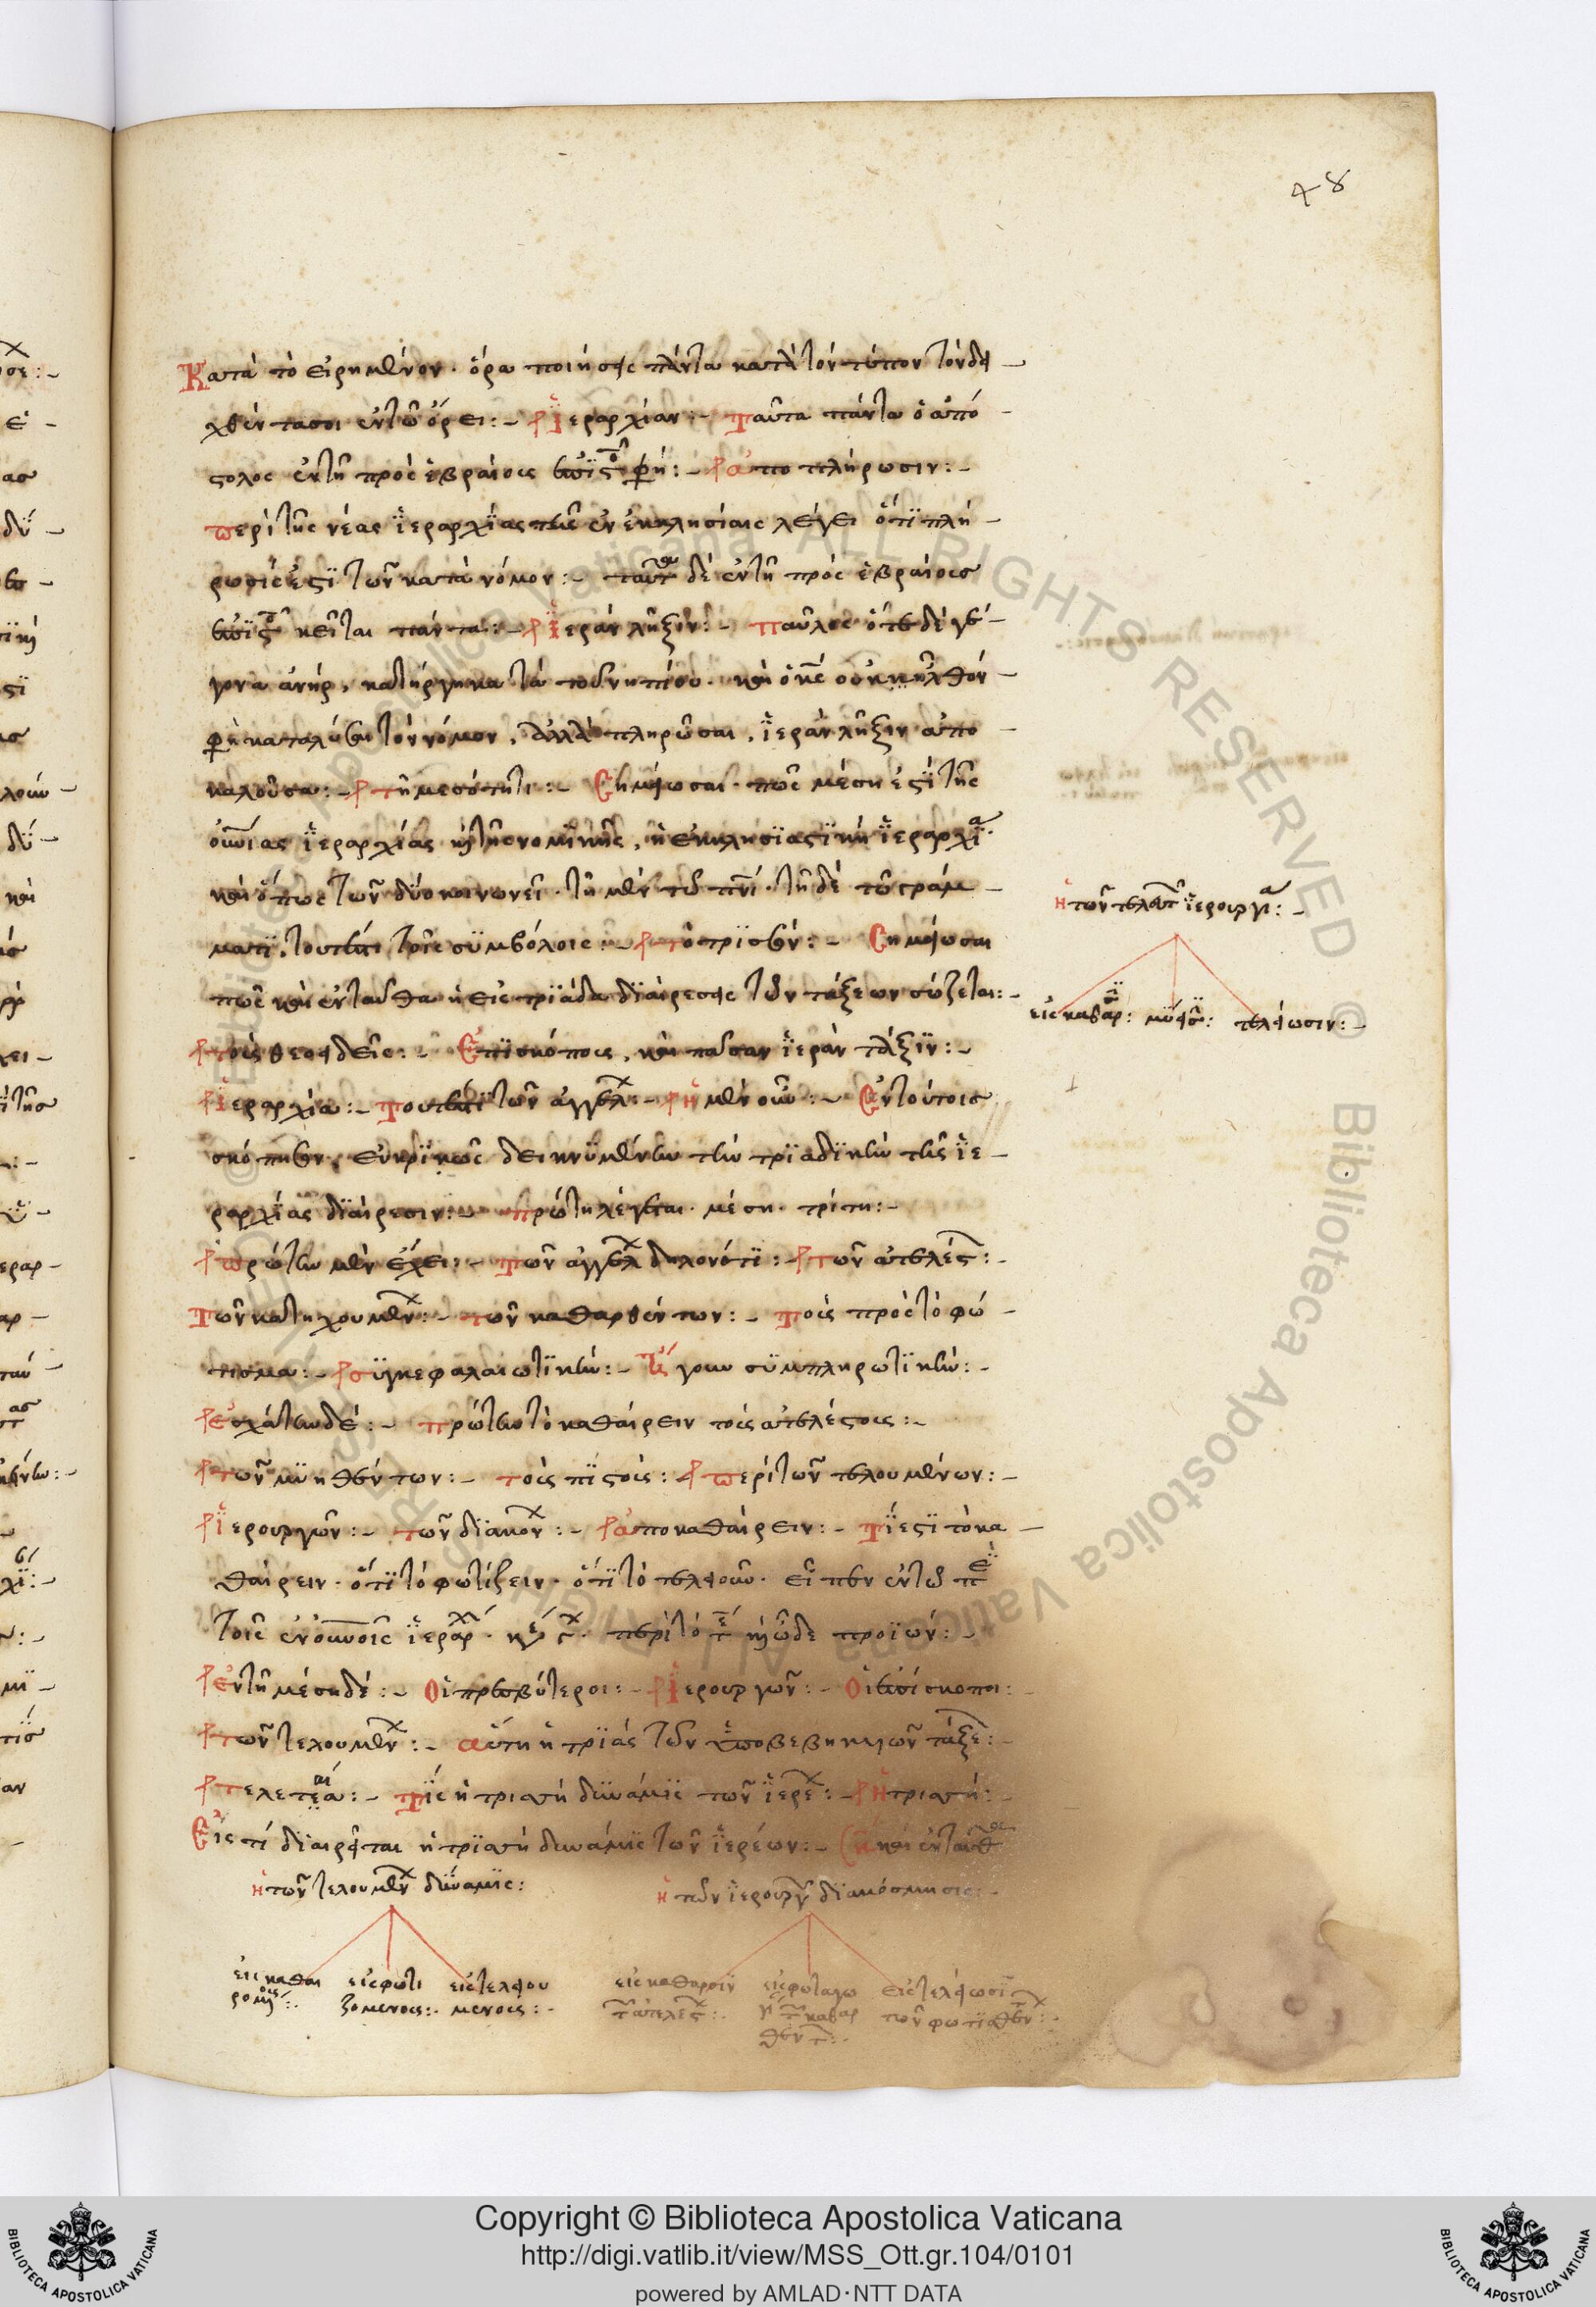 48
Κατὰ τὸ εἰρημένον· ὅρα ποιήσεις πάντα κατὰ τὸν τύπον τὸν δει –
χθέντα σοι ἐν τῶ ὄρει:– ἱεραρχίαν:– Ταῦτα πάντα ὁ ἀπό –
στολος ἐν τῆ πρὸς ἑβραίους φη:– ἀποπλήρωσιν:–
περὶ τῆς νέας ἱεραρχίας τῆς ἐν ἐκκλησίαις λέγει ὅτι πλή –
ρωσίς ἐστι τῶν κατὰ νόμον:– ταῦτα δὲ ἐν τῆ πρὸς ἑβραίους
κεῖται πάντα:– ἱερὰν λῆξιν:– παῦλος ὅτε δὲ γέ –
γονα ἀνήρ, κατήργηκα τὰ τοῦ νηπίου· καὶ ὁ κς οὐκ ἦλθόν
φη καταλύσαι τὸν νόμον, ἀλλὰ πληρῶσαι, ἱερὰν λῆξιν ἀπο –
καλοῦσα:– τῆ μεσότητι:– Σημείωσαι· πῶς μέση ἐστὶ τῆς
οὐνίας ἱεραρχίας καὶ τῆς νομικῆς, ἡ ἐκκλησιαστικὴ ἱεραρχία·
καὶ ὅπως τῶν δύο κοινωνεῖ· τῆ μὲν τῶ πνι· τῆ δὲ τῶ γράμ –
ματι, τουτέστι τοῖς συμβόλοις:– τὸ τρισσὴν:– Σημείωσαι
πῶς καὶ ἐνταῦθα ἡ εἰς τριάδα διαίρεσις τῶν τάξεων σώζεται:–
τοῖς θεοειδεῖς:– Ἐπισκόποις, καὶ πᾶσαν ἱερὰν τάξιν:–
ἱεραρχία:– Τουτέστι τῶν ἀγγέλ:– Ἡ μὲν οὖν:– Ἐν τούτοις
εὐκρινῶς δεικνυμένην τὴν τριαδικὴν τῆς ἱε –
ραρχίας διαίρεσιν:– πρώτη λέγεται· μέση· τρίτη:–
πρώτην μὲν ἔχει:– Τῶν ἀγγέλ δηλονότι:– τῶν ἀτελέστ:–
Τῶν κατηχουμέν:– τῶν καθαρθέντων:– Τοῖς πρὸς τὸ φώ –
τισμα:– συγκεφαλαιωτικὴν:– Ἤγουν συμπληρωτικὴν:–
ἐσχάτην δέ:– πρώτην τὸ καθαίρειν τοὺς ἀτελέστους:–
τῶν μυηθέντων:– τοῖς πιστοῖς:– περὶ τῶν τελουμένων:–
ἱερουργῶν:– τῶν διακόν:– ἀποκαθαίρειν:– Τί ἐστι τὸ κα –
θαίρειν· ὅτι τὸ φωτίζειν· ὅτι τὸ τελειοῦν· εἶπεν ἐν τῶ
τοῖς ἐν οὐνοῖς ἱεραρ· περὶ τὸ καὶ ὧδε προϊών:–
ἐν τῆ μέση δέ:– Οἱ πρεσβύτεροι:– ἱερουργῶν:– Οἱ ἐπίσκοποι:–
τῶν τελουμέν:– αὕτη ἡ τριὰς τῶν ὑποβεβηκυιῶν τάξε:–
τελεταί:– Τίς ἡ τριαττὴ δύναμις τῶν ἱερέ:– ἡ τριαττή:–
Εἰς τί διαιρεῖται ἡ τριαττὴ δύναμις τῶν ἱερέων:– καὶ ἐνταῦθ
ἡ τῶν τελουμέν δύναμις:
εἰς καθαι
ρομένους:·
εἰς φωτι
ζομένους:·
εἰς τελειου
μένους:–
ἡ τῶν ἱερουργ διακόσμησις:–
εἰς καθαρσιν
τῶν ἀτελέστ:·
εἰς φωταγω
γὴν τῶν καθαρ
θέντ:·
εἰς τελείωσιν
τῶν φωτισθέν:·
ἡ τῶν τελετῶν ἱερουργία:–
εἰς καθαρ: μύησιν: τελείωσιν:–
Copyright © Biblioteca Apostolica Vaticana
http://digi.vatlib.it/view/MSS_Ott.gr.104/0101
powered by AMLAD·NTT DATA
BIBLIOTECA APOSTOLICA VATICANA
BIBLIOTECA APOSTOLICA VATICANA